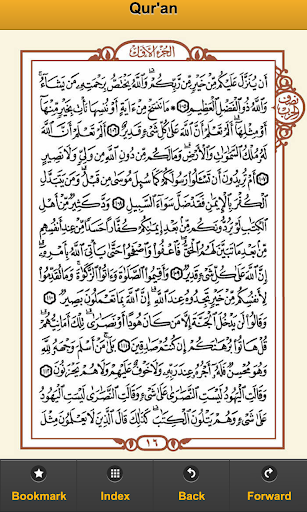 Qur'an
الجزء الأول
أَن يُنَزَّلَ عَلَيْكُم مِّنْ خَيْرٍ مِّن رَّبِّكُمْ وَٱللَّهُ يَخْتَصُّ بِرَحْمَتِهِۦ مَن يَشَآءُ
وَٱللَّهُ ذُو ٱلْفَضْلِ ٱلْعَظِيمِ ١٠٥ مَا نَنسَخْ مِنْ ءَايَةٍ أَوْ نُنسِهَا نَأْتِ بِخَيْرٍ مِّنْهَآ
أَوْ مِثْلِهَآ أَلَمْ تَعْلَمْ أَنَّ ٱللَّهَ عَلَىٰ كُلِّ شَىْءٍ قَدِيرٌ ١٠٦ أَلَمْ تَعْلَمْ أَنَّ ٱللَّهَ
لَهُۥ مُلْكُ ٱلسَّمَٰوَٰتِ وَٱلْأَرْضِ وَمَا لَكُم مِّن دُونِ ٱللَّهِ مِن وَلِىٍّ وَلَا نَصِيرٍ ١٠٧
أَمْ تُرِيدُونَ أَن تَسْـَٔلُوا۟ رَسُولَكُمْ كَمَا سُئِلَ مُوسَىٰ مِن قَبْلُ وَمَن يَتَبَدَّلِ
ٱلْكُفْرَ بِٱلْإِيمَٰنِ فَقَدْ ضَلَّ سَوَآءَ ٱلسَّبِيلِ ١٠٨ وَدَّ كَثِيرٌ مِّنْ أَهْلِ
ٱلْكِتَٰبِ لَوْ يَرُدُّونَكُم مِّنۢ بَعْدِ إِيمَٰنِكُمْ كُفَّارًا حَسَدًا مِّنْ عِندِ أَنفُسِهِم
مِّنۢ بَعْدِ مَا تَبَيَّنَ لَهُمُ ٱلْحَقُّ فَٱعْفُوا۟ وَٱصْفَحُوا۟ حَتَّىٰ يَأْتِىَ ٱللَّهُ بِأَمْرِهِۦٓ
إِنَّ ٱللَّهَ عَلَىٰ كُلِّ شَىْءٍ قَدِيرٌ ١٠٩ وَأَقِيمُوا۟ ٱلصَّلَوٰةَ وَءَاتُوا۟ ٱلزَّكَوٰةَ وَمَا تُقَدِّمُوا۟
لِأَنفُسِكُم مِّنْ خَيْرٍ تَجِدُوهُ عِندَ ٱللَّهِ إِنَّ ٱللَّهَ بِمَا تَعْمَلُونَ بَصِيرٌ ١١٠
وَقَالُوا۟ لَن يَدْخُلَ ٱلْجَنَّةَ إِلَّا مَن كَانَ هُودًا أَوْ نَصَٰرَىٰ تِلْكَ أَمَانِيُّهُمْ
قُلْ هَاتُوا۟ بُرْهَٰنَكُمْ إِن كُنتُمْ صَٰدِقِينَ ١١١ بَلَىٰ مَنْ أَسْلَمَ وَجْهَهُۥ لِلَّهِ
وَهُوَ مُحْسِنٌ فَلَهُۥٓ أَجْرُهُۥ عِندَ رَبِّهِۦ وَلَا خَوْفٌ عَلَيْهِمْ وَلَا هُمْ يَحْزَنُونَ ١١٢
وَقَالَتِ ٱلْيَهُودُ لَيْسَتِ ٱلنَّصَٰرَىٰ عَلَىٰ شَىْءٍ وَقَالَتِ ٱلنَّصَٰرَىٰ لَيْسَتِ ٱلْيَهُودُ
عَلَىٰ شَىْءٍ وَهُمْ يَتْلُونَ ٱلْكِتَٰبَ كَذَٰلِكَ قَالَ ٱلَّذِينَ لَا يَعْلَمُونَ مِثْلَ
١٦
Bookmark
Index
Back
Forward